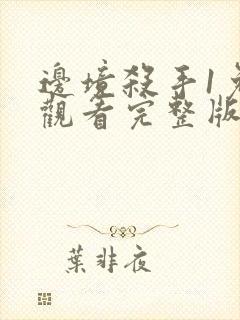 邊境殺手1免
觀看完整版
葉非夜